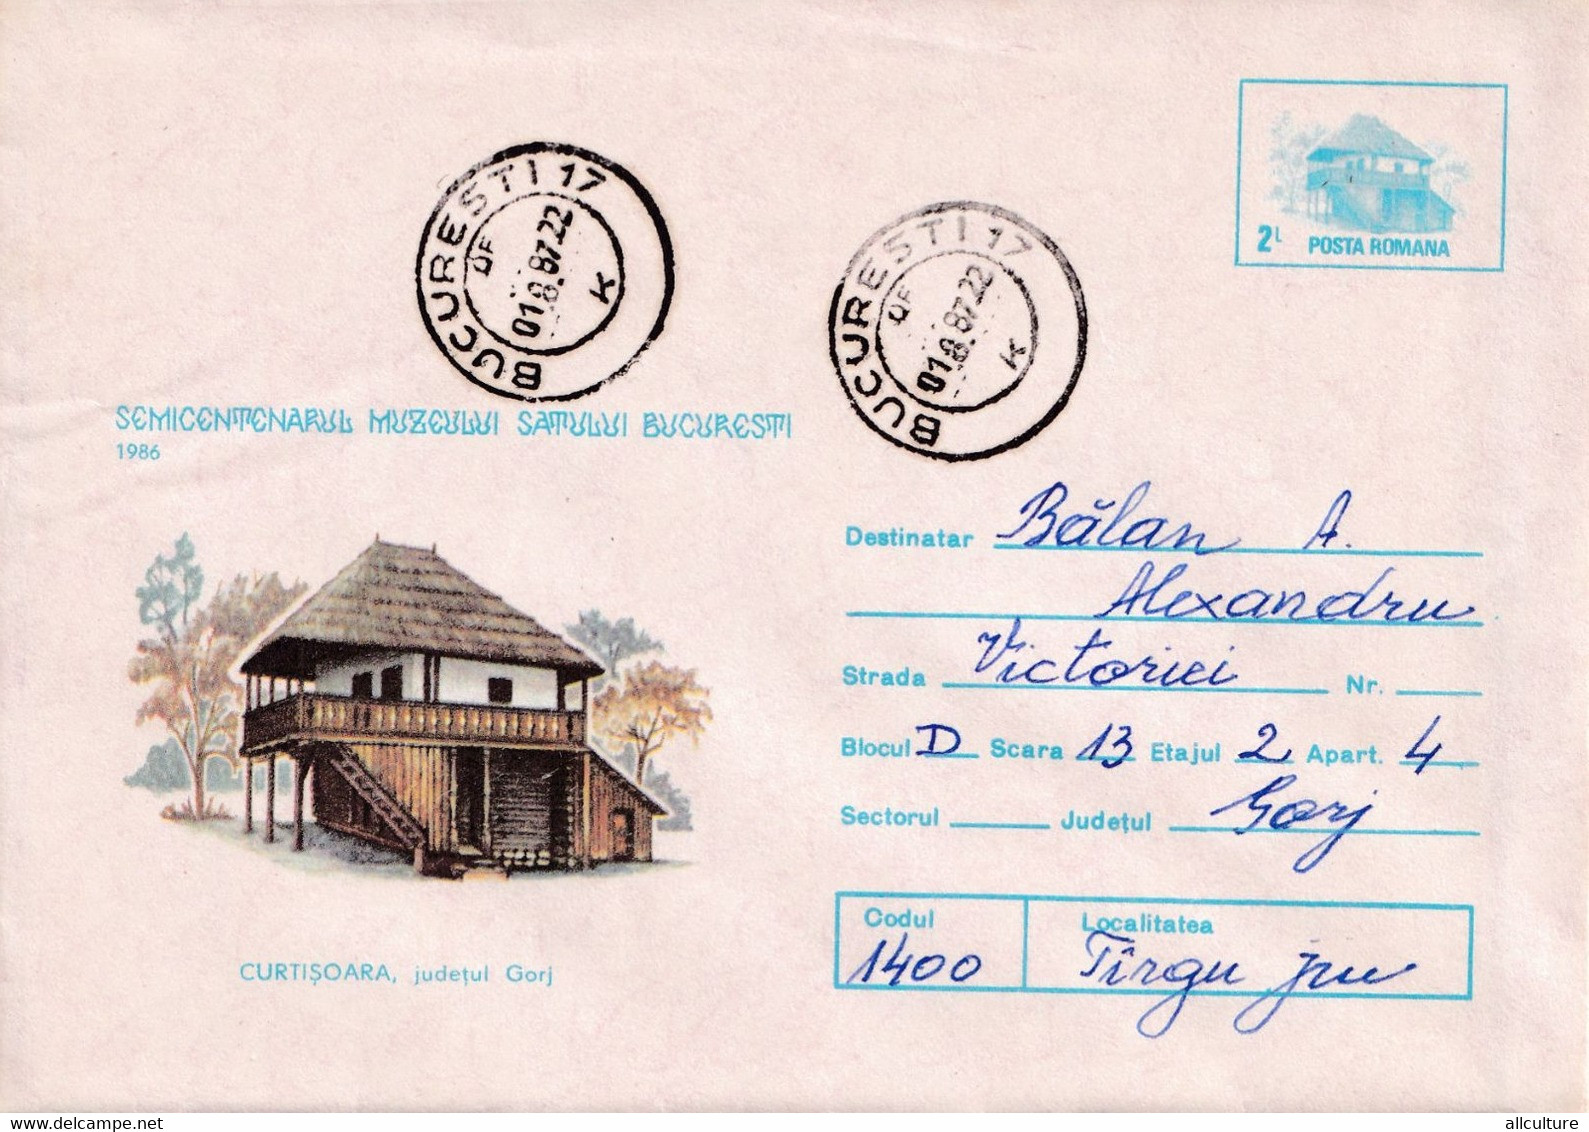 2L POSTA ROMANA
BUCURESTI 17
OF
01.8.87.22
K
BUCURESTI 17
OF
01.8.87.22
K
SEMICENTENARUL MUZEULUI SATULUI BUCURESTI
1986
Destinatar Bălan A.
Alexandru
Strada Victoriei Nr.
Blocul D Scara 13 Etajul 2 Apart. 4
Sectorul Județul Gorj
Codul Localitatea
1400 Tîrgu jiu
CURTIȘOARA, județul Gorj
allculture